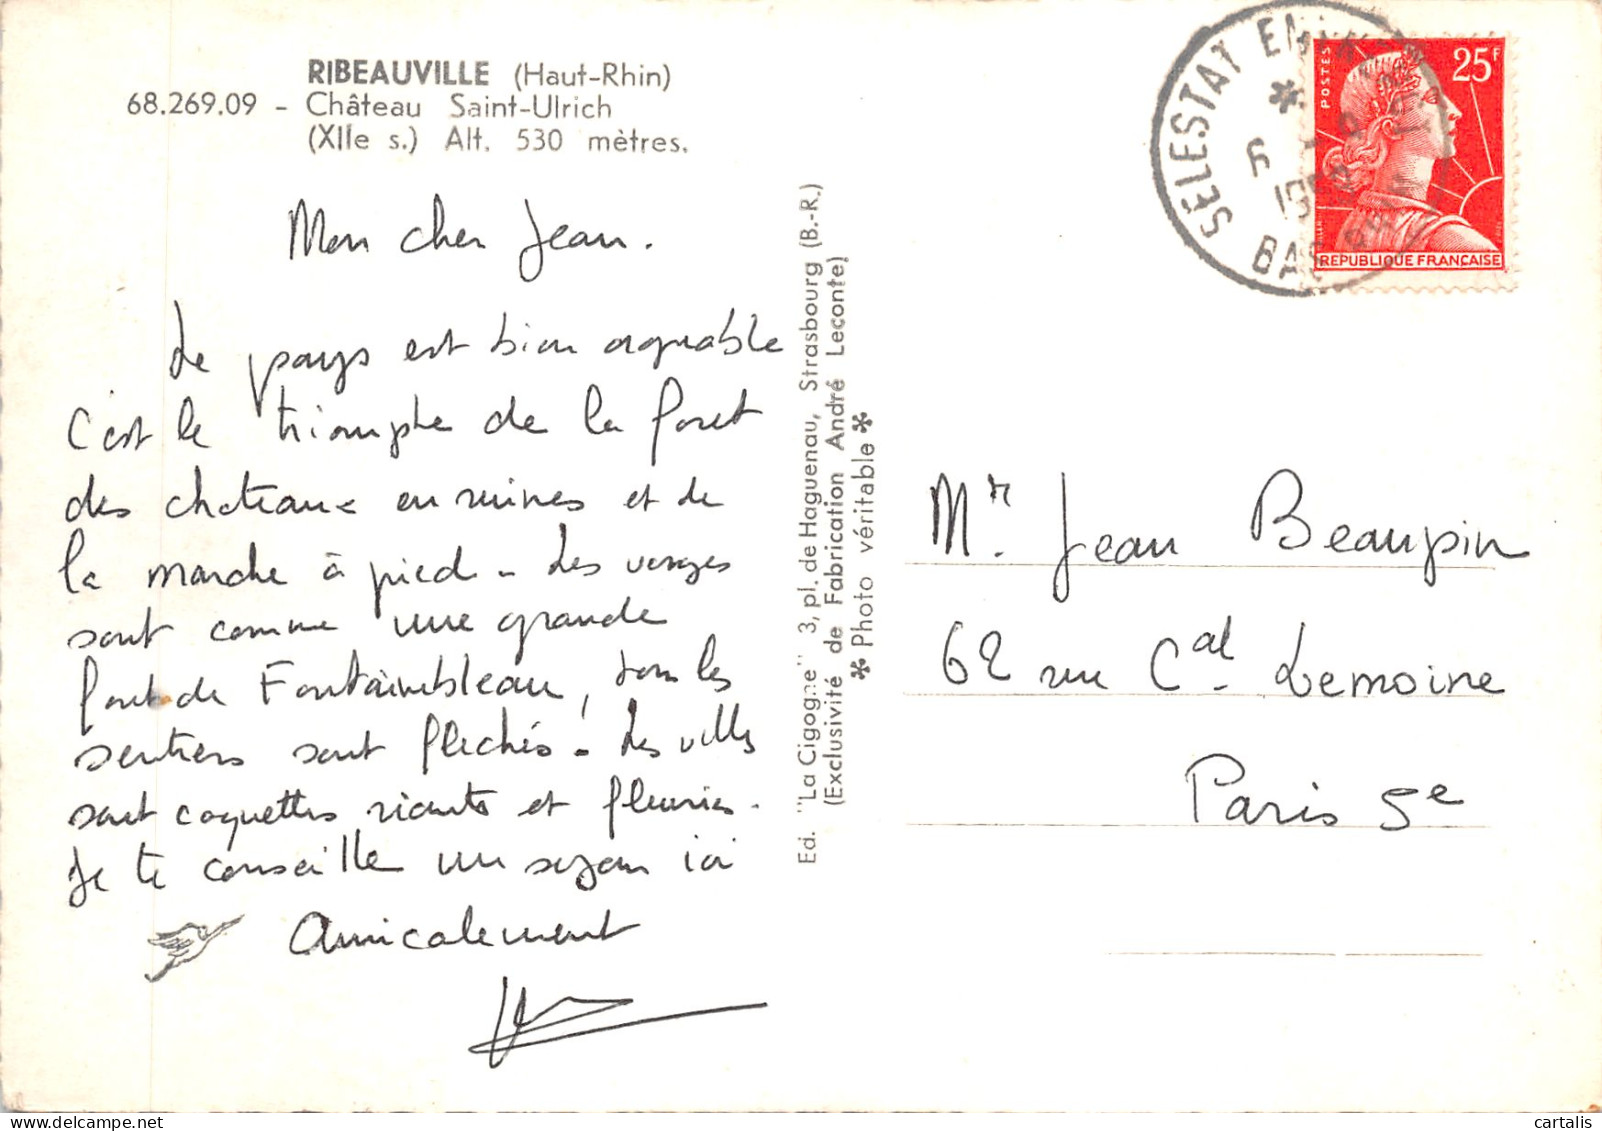 RIBEAUVILLE (Haut-Rhin)
68.269.09 - Château Saint-Ulrich
(XIIe s.) Alt. 530 mètres.
Mon cher Jean.
Le pays est bien agréable
C'est le triomphe de la foret
des chateaux en ruines et de
la marche à pied - Les vosges
sont comme une grande
foret de Fontainebleau, tous les
sentiers sont fléchés - Les villes
sont coquettes riantes et fleuries -
Je te conseille un séjour ici
Amicalement
Ed. "La Cigogne" 3, pl. de Haguenau, Strasbourg (B.-R.)
(Exclusivité de Fabrication André Leconte)
* Photo véritable *
SÉLESTAT
* 6
BAS RHIN
POSTES
25F
REPUBLIQUE FRANÇAISE
Mr. Jean Beaupin
62 rue Cal Lemoine
Paris 5e
cartalis